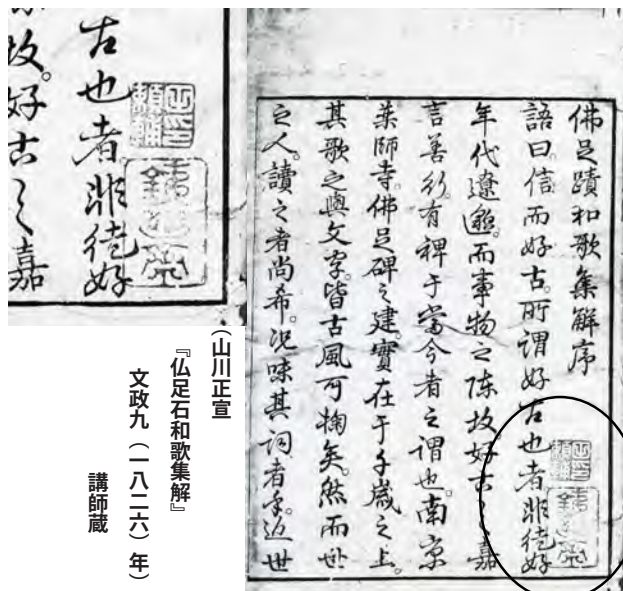 佛足蹟和歌集解序
語曰。信而好古。所謂好古也者非徒好
年代遼邈。而事物之陳故。好古之嘉
言善行。有裨于當今者之謂也。南京
藥師寺。佛足碑之建。實在于千歳之上。
其歌之與文字。皆古風可掬矣。然而世
之人。讀之者尚希。況味其詞者乎。近世
古也者非徒好
故。好古之嘉
（山川正宣
『仏足石和歌集解』
文政九（一八二六）年）
講師蔵